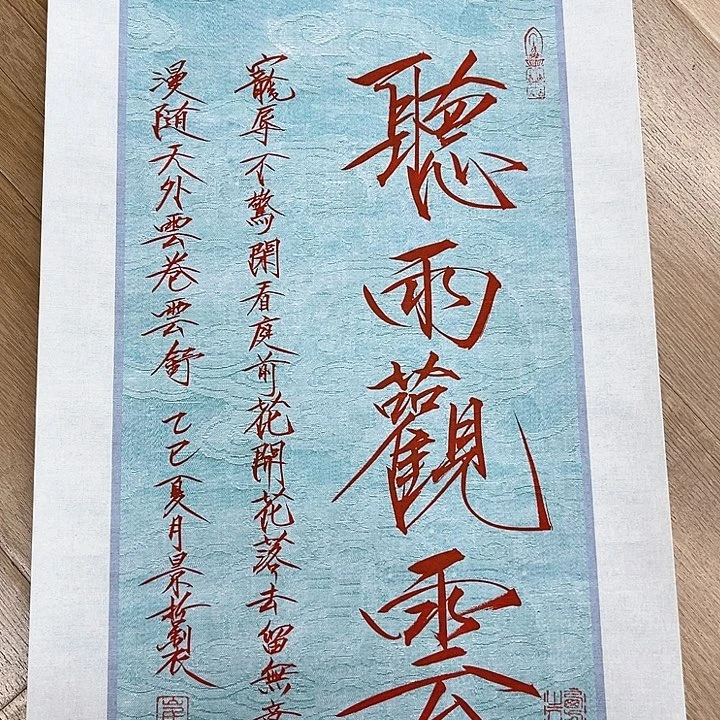 聽雨觀雲
寵辱不驚閑看庭前花開花落去留無意
漫随天外雲卷雲舒 乙巳夏月景哲製